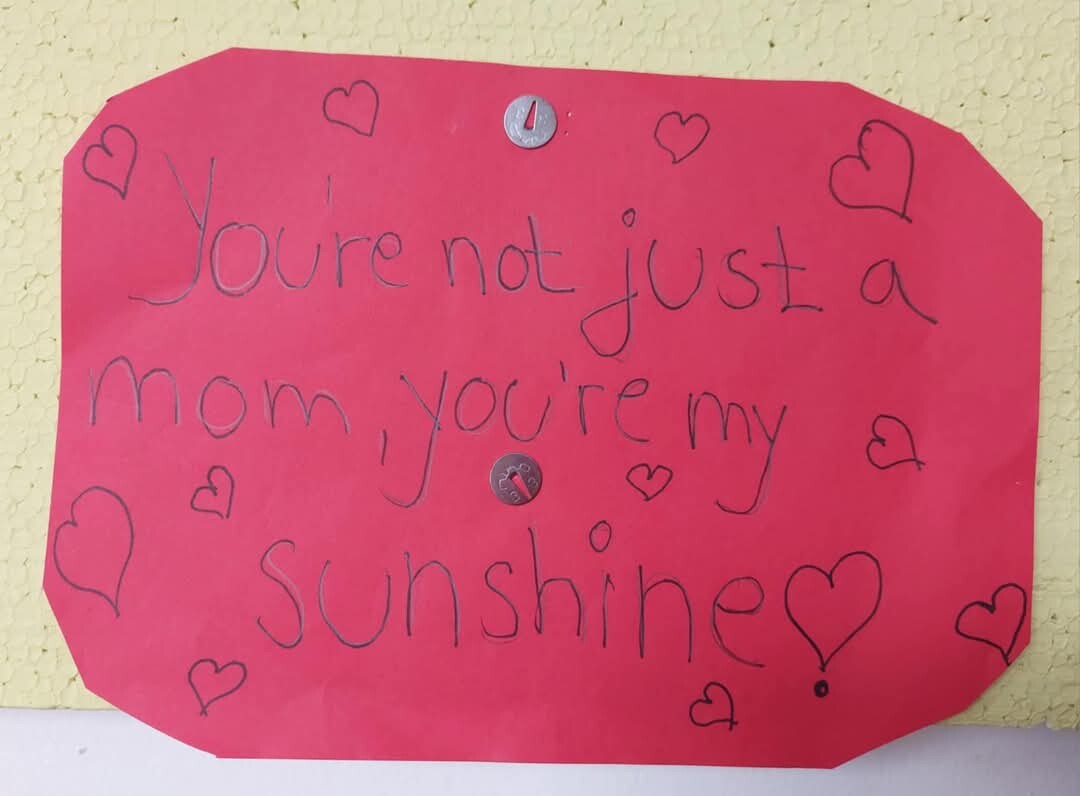 You're not just a
mom, you're my
sunshine!